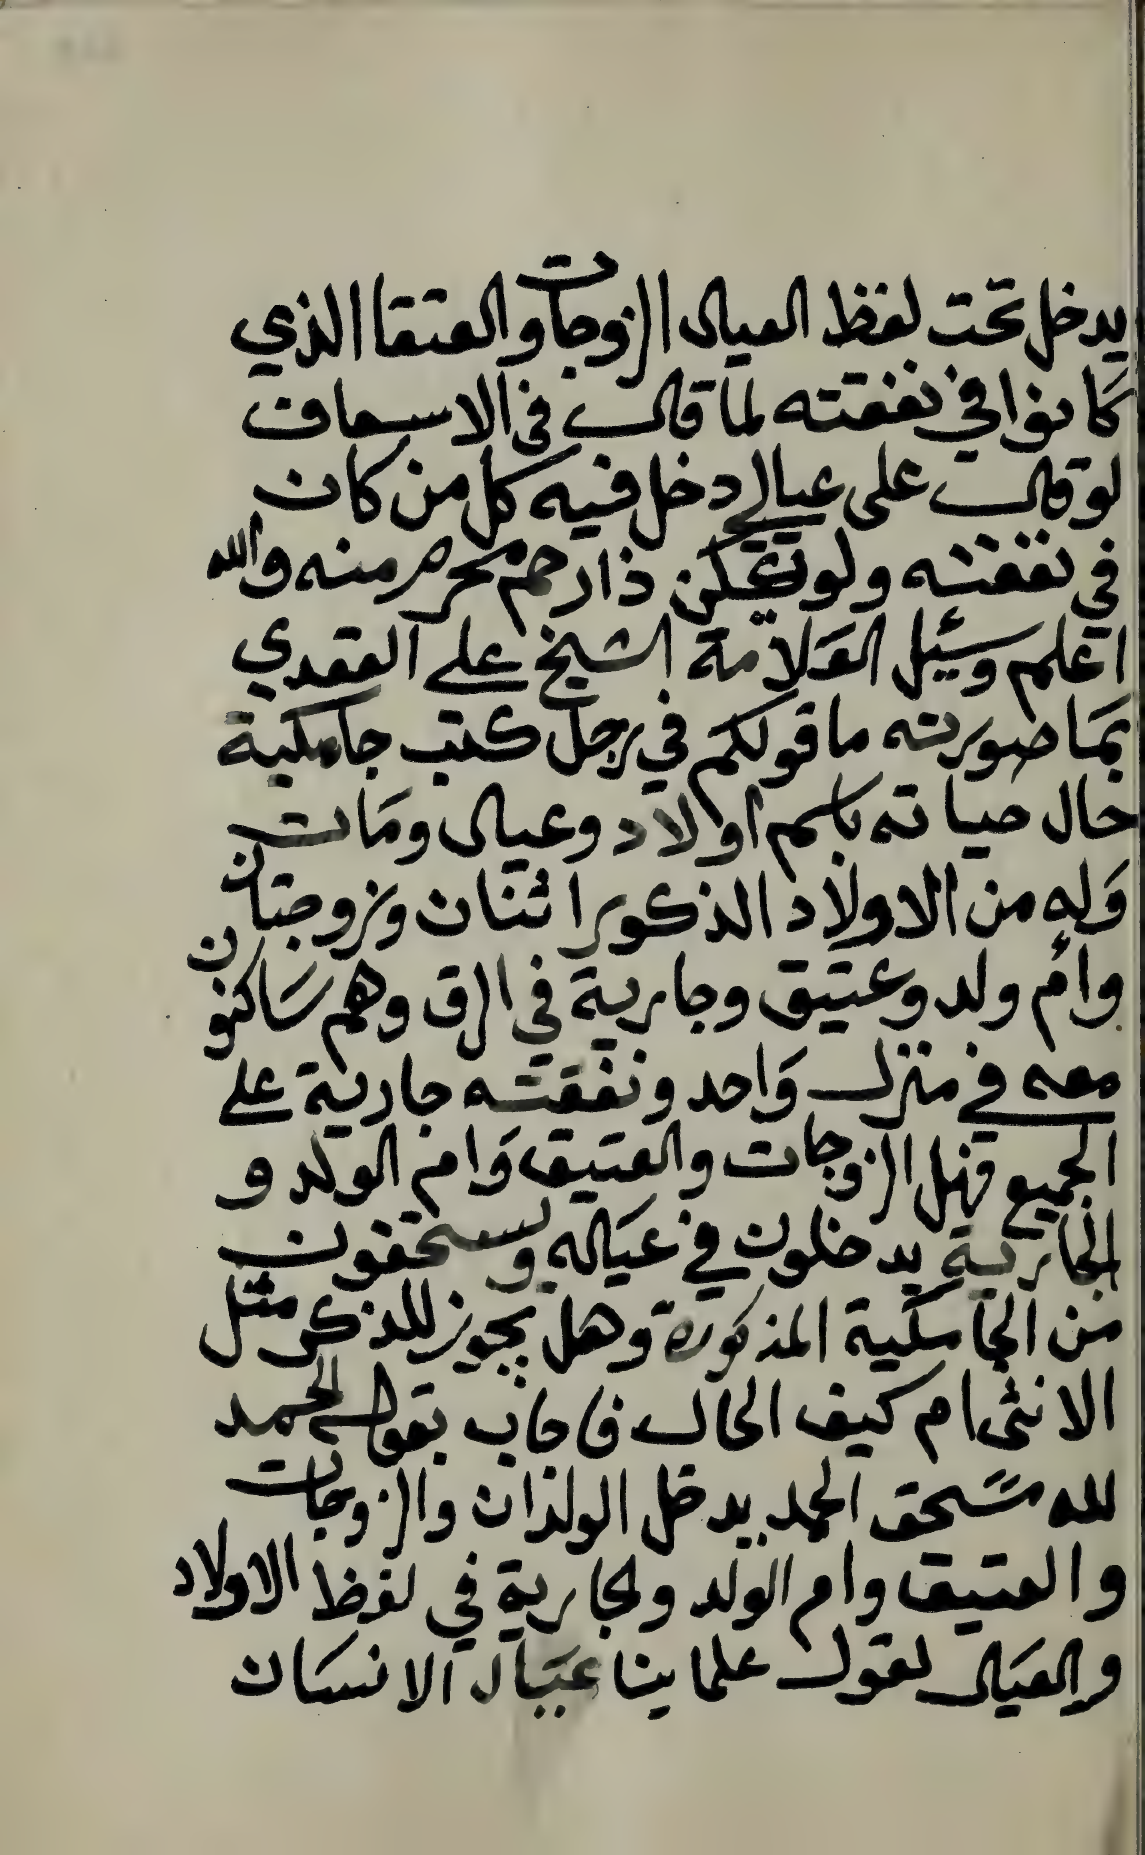 يدخل تحت لفظ العيال الزوجات والعتقا الذي
كانوا في نفقته لما قال في الاسعاف
لو قال على عيالي دخل فيه كل من كان
في نفقته ولو ذا رحم محرم منه والله
اعلم وسئل العلامة الشيخ علي العقدي
بما صورته ما قولكم في رجل كتب جامكية
حال حياته باسم اولاد وعيال ومات
وله من الاولاد الذكور اثنان وزوجتان
وأم ولد وعتيق وجارية في الرق وهم ساكنون
معه في منزل واحد ونفقته جارية على
الجميع فهل الزوجات والعتيق وام الولد و
الجارية يدخلون في عياله ويستحقون
من الجامكية المذكورة وهل يجوز للذكر مثل
الانثى ام كيف الحال فاجاب بقوله الحمد
لله مستحق الحمد يدخل الولدان والزوجات
والعتيق وام الولد والجارية في لفظ الاولاد
والعيال لقول علماينا عيال الانسان